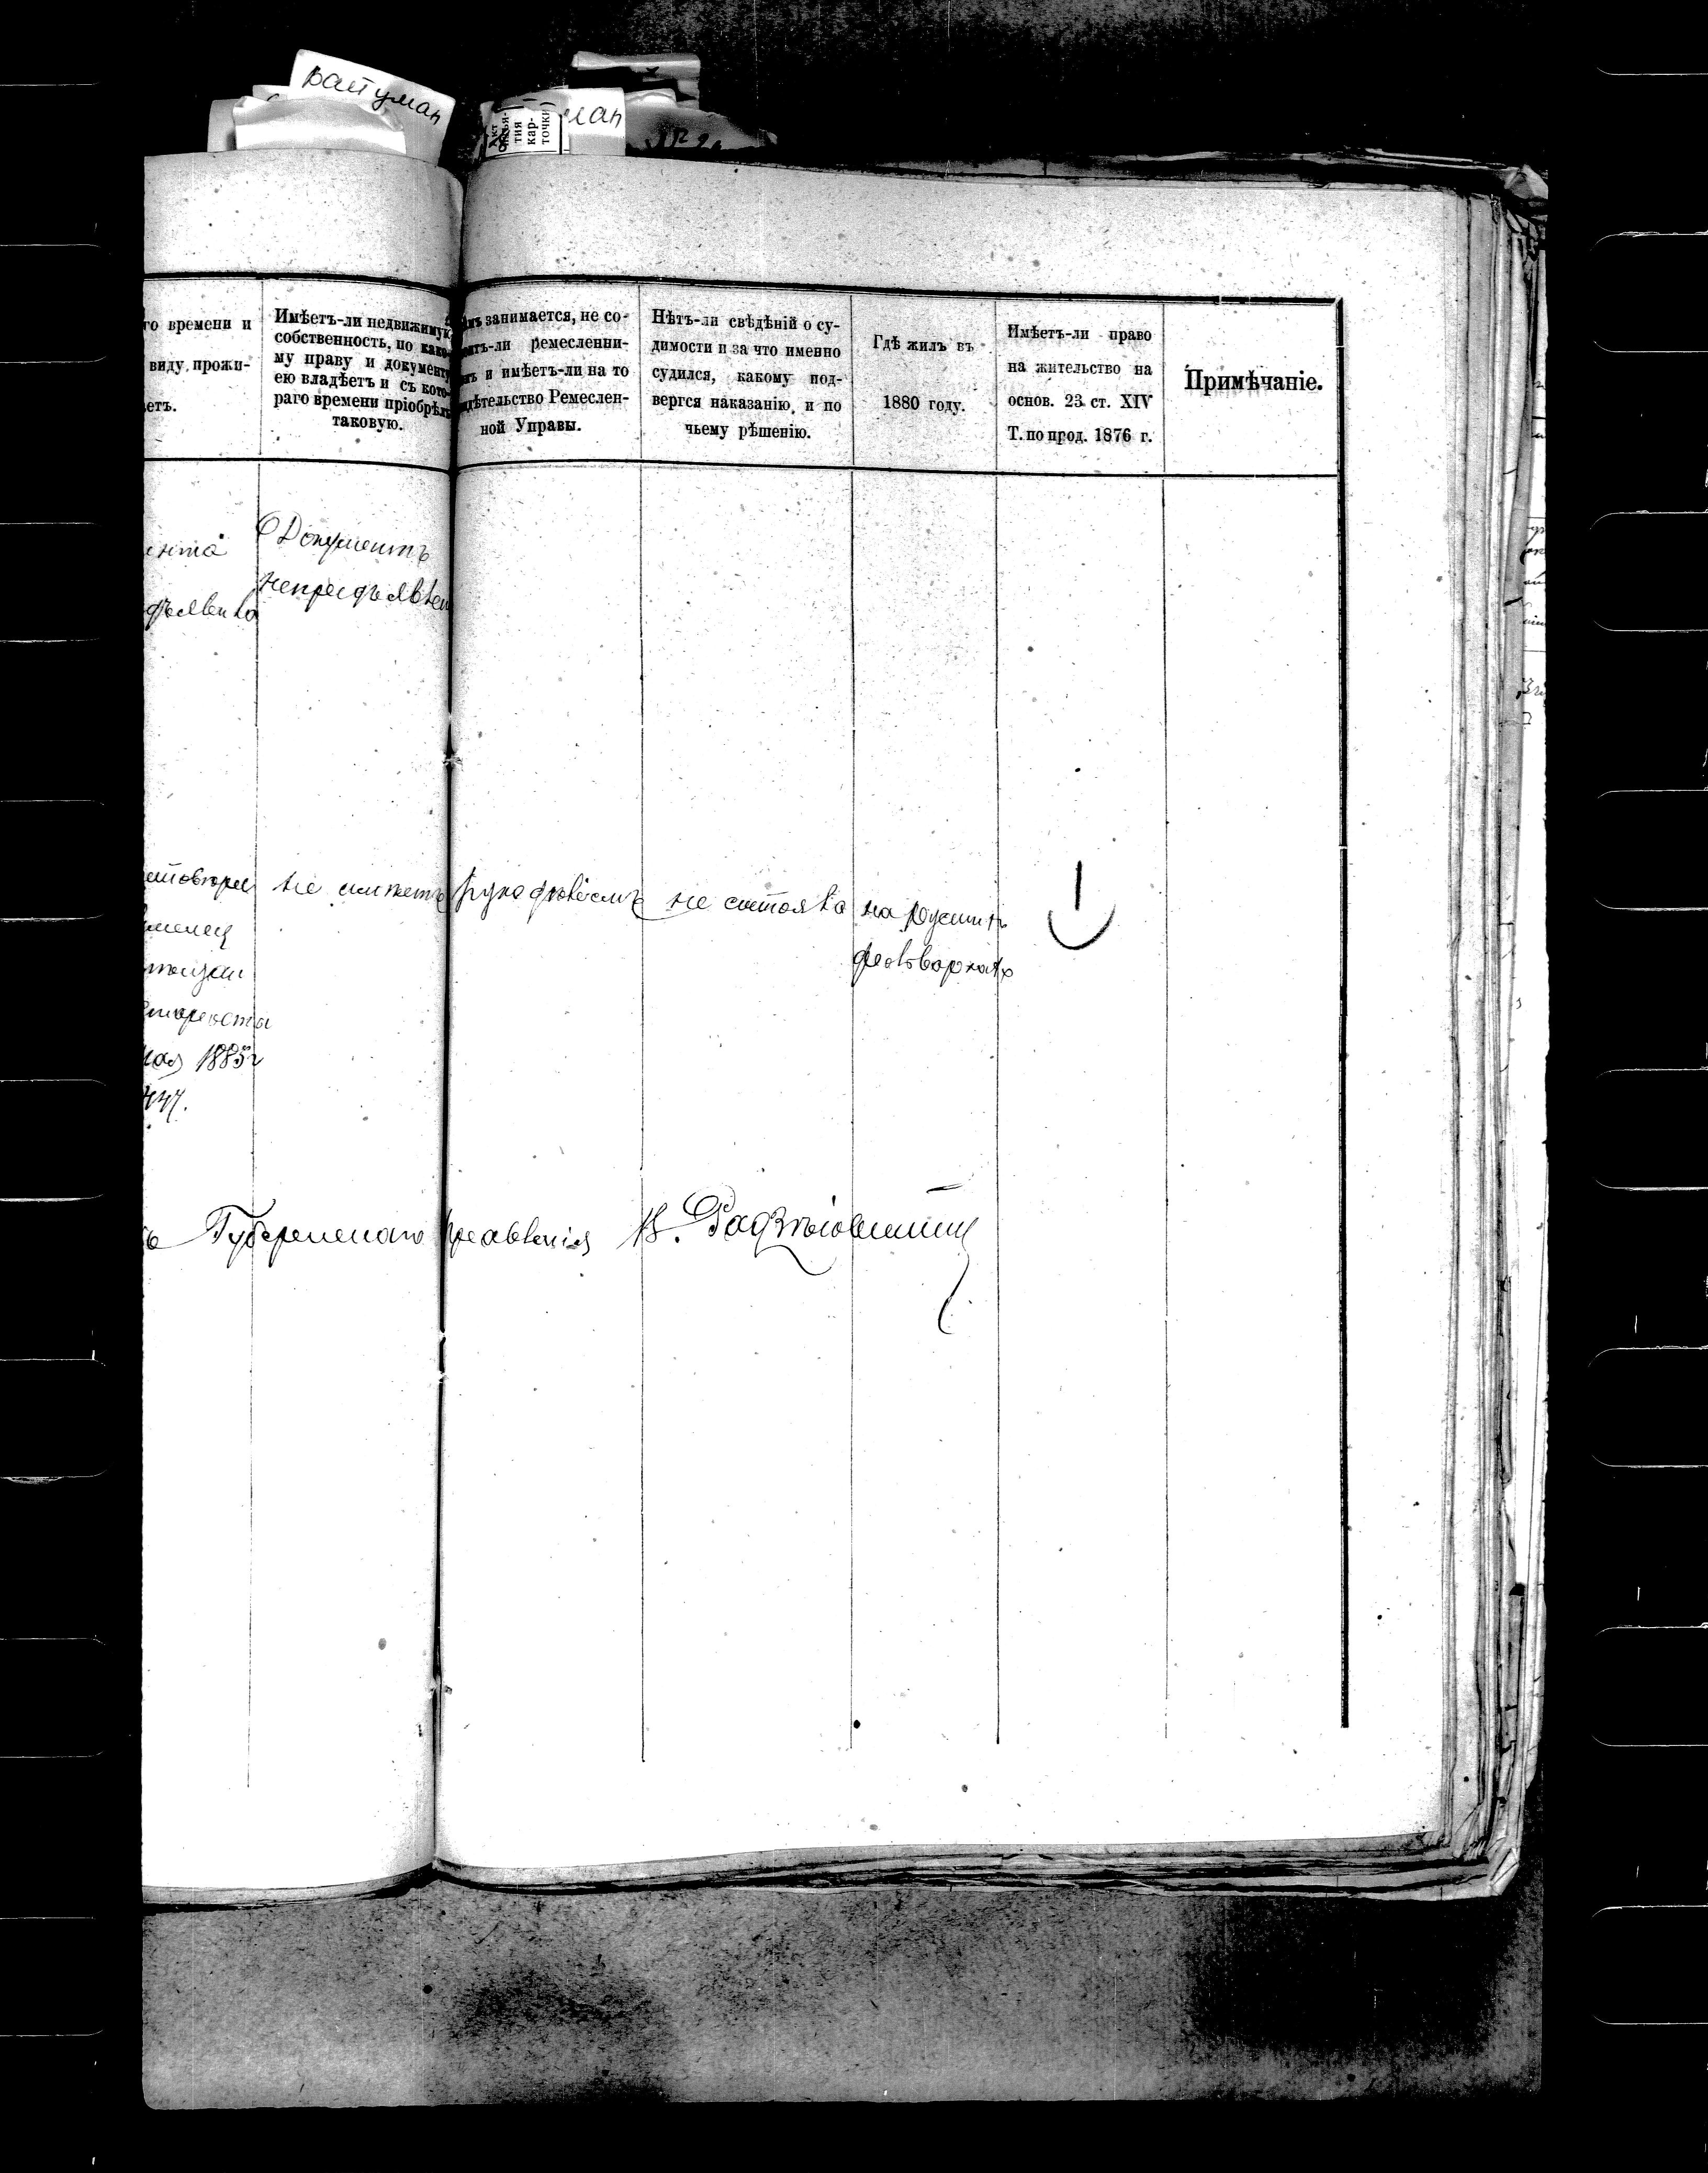 Вайтуман
ман
Акт
изъя-
тия
кар-
точки
го времени и
виду прожи-
етъ.
Имѣетъ-ли недвижимую
собственность, по како-
му праву и документу
ею владѣетъ и съ кото-
раго времени пріобрѣлъ
таковую.
ѣмъ занимается, не со-
итъ-ли ремесленни-
мъ и имѣетъ-ли на то
идѣтельство Ремеслен-
ной Управы.
Нѣтъ-ли свѣдѣній о су-
димости и за что именно
судился, какому под-
вергся наказанію, и по
чьему рѣшенію.
Гдѣ жилъ въ
1880 году.
Имѣетъ-ли право
на жительство на
основ. 23 ст. XIV
Т. по прод. 1876 г.
Примѣчаніе.
ента
дъявила
Документъ
непредъявлен
не имѣетъ
рукодѣліемъ
не состояла
на
фольваркахъ
1885 г
Губернскаго Правленія В.